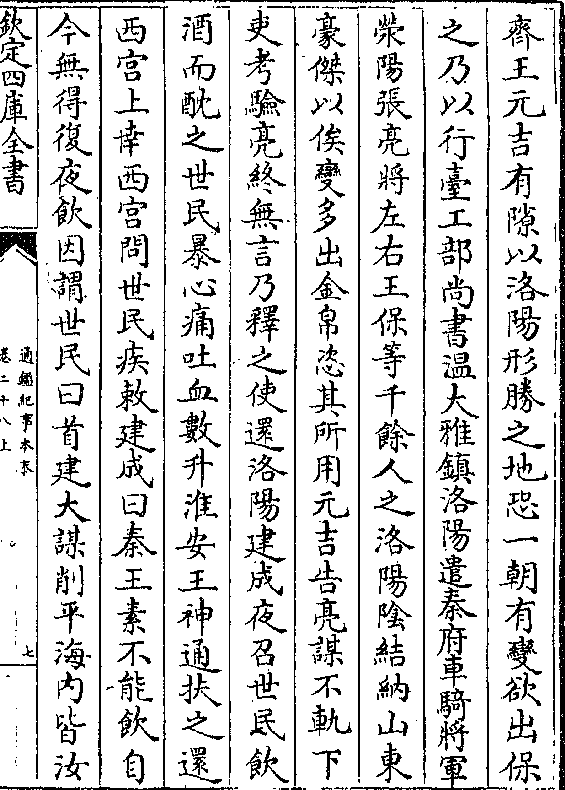 齊王元吉有隙以洛陽形勝之地恐一朝有變欲出保
之乃以行臺工部尚書温大雅鎮洛陽遣秦府車騎將軍
滎陽張亮將左右王保等千餘人之洛陽陰結納山東
豪傑以俟變多出金帛恣其所用元吉告亮謀不軌下
吏考驗亮終無言乃釋之使還洛陽建成夜召世民飲
酒而酖之世民暴心痛吐血數升淮安王神通扶之還
西宫上幸西宫問世民疾敕建成曰秦王素不能飲自
今無得復夜飲因謂世民曰首建大謀削平海内皆汝
欽定四庫全書
通鑑紀事本末
卷二十八上
七